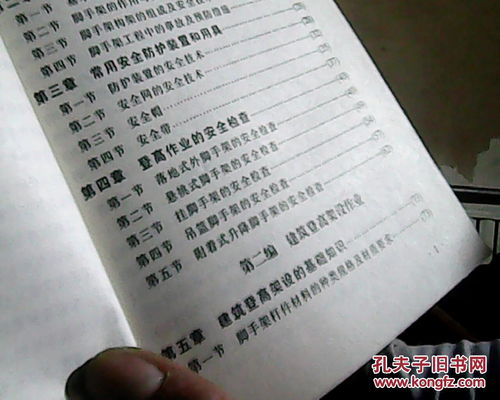 第二节 脚手架的作用
第三节 脚手架构架的组成及安全技
第四节 脚手架工程中的事故及预防措施
第三章 常用安全防护装置和用具
第一节 防护装置的安全技术
第二节 安全网的安全技术
第三节 安全帽
第四节 安全带
第四章 登高作业的安全检查
第一节 落地式外脚手架的安全检查
第二节 悬挑式脚手架的安全检查
第三节 挂脚手架的安全检查
第四节 吊篮脚手架的安全检查
第五节 附着式升降脚手架的安全检查
第二编 建筑登高架设作业
第五章 建筑登高架设的基础知识
第一节 脚手架杆件材料的种类规格及材质要求
· 1 ·
孔夫子旧书网
www.kongfz.com